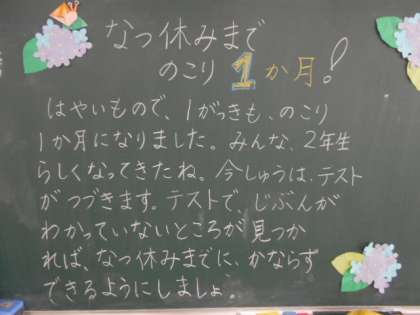 なつ休みまで
のこり1か月！
はやいもので、1がっきも、のこり
1か月になりました。みんな、2年生
らしくなってきたね。今しゅうは、テスト
がつづきます。テストで、じぶんが
わかっていないところが見つか
れば、なつ休みまでに、かならず
できるようにしましょ。